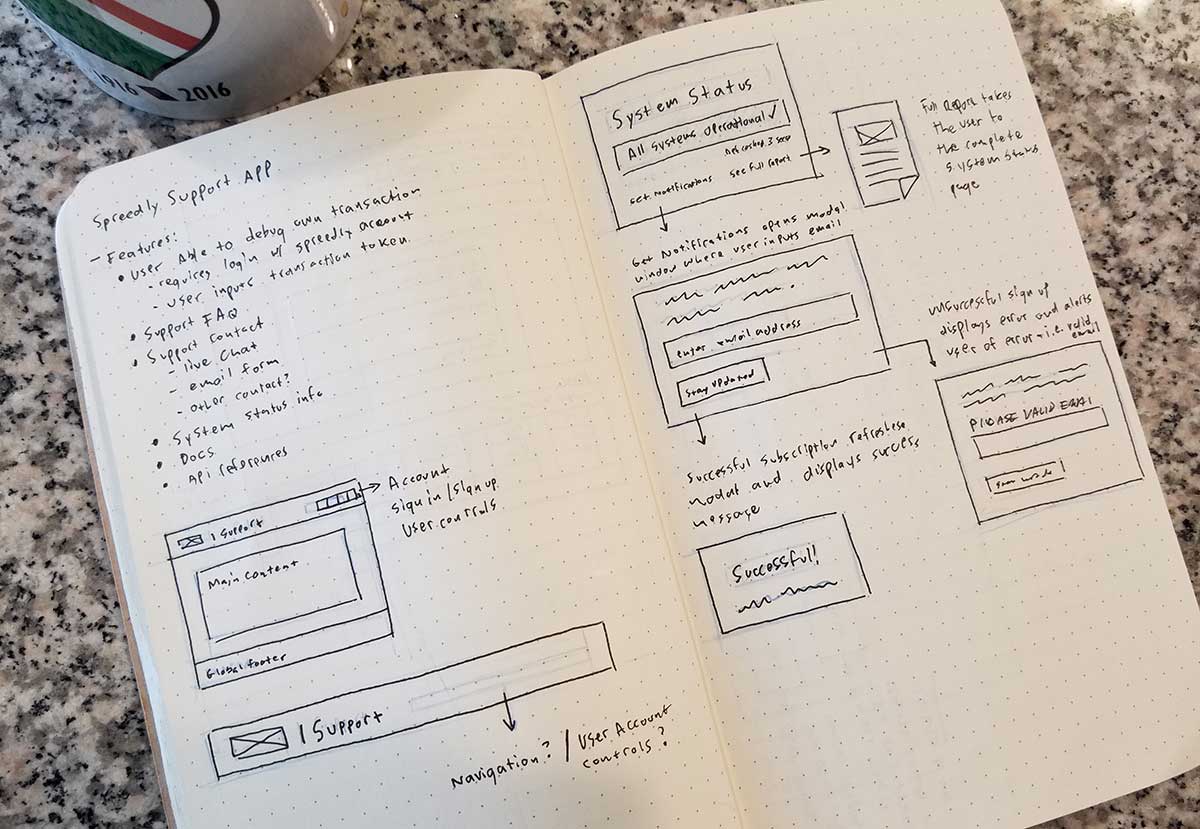 1916 2016
Spreedly Support App
- Features:
• User Able to debug own transaction
- requires login w/ spreedly account
- user inputs transaction token.
• Support FAQ
• Support contact
- live Chat
- email form
- other contact?
• System status info
• Docs
• Api references
| Support
→ Account
sign in/sign up
User controls
Main Content
Global footer
| Support
Navigation? / User Account
controls?
System Status
All Systems Operational ✓
3 secs
Get Notifications
See full report
Full Report takes
the user to
the complete
System Status
page
Get Notifications opens modal
window where user inputs email
enter email address
Stay updated
unsuccessful sign up
displays error and alerts
user of error - i.e. valid
email
PLEASE VALID EMAIL
Successful subscription refreshes
modal and displays success
message
Successful!